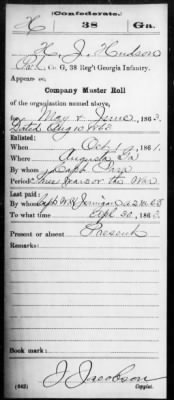 (Confederate.)
H 38 Ga.
H. J. Hudson
Pvt, Co. G, 38 Reg't Georgia Infantry.
Appears on
Company Muster Roll
of the organization named above,
for May & June, 1863.
Dated Aug 10 1863
Enlisted:
When Oct 1, 1861.
Where Augusta Ga
By whom Capt
Period Three Years or the War
Last paid:
By whom Capt W H Jernigan
To what time Apl. 30, 1863.
Present or absent Present
Remarks:
Book mark:
J. Jacobson
(642) Copyist.